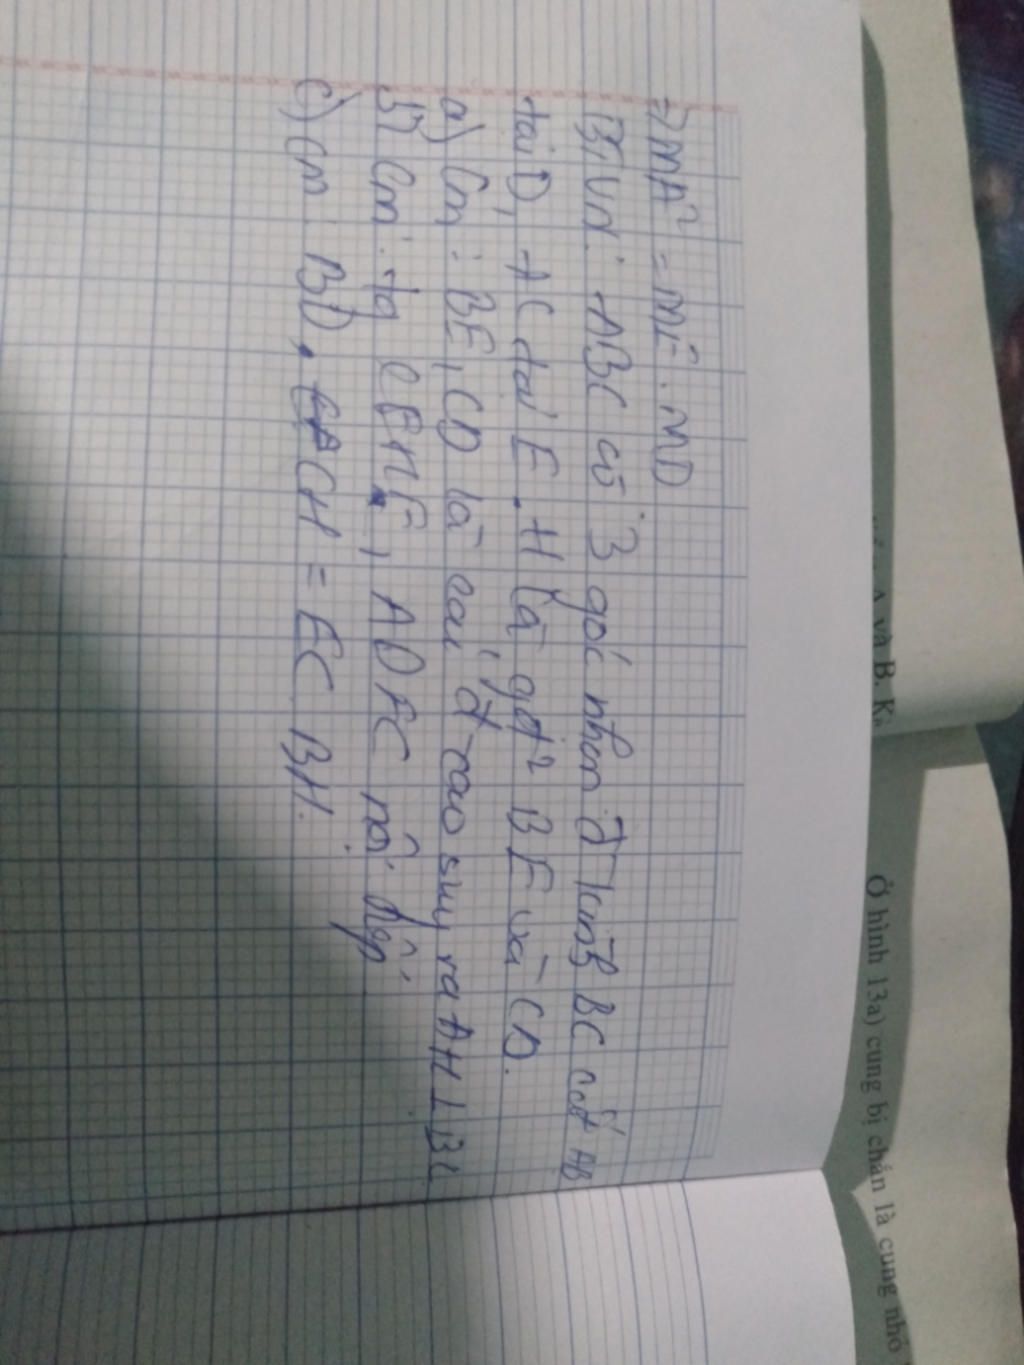 => MA² = ME . MD
BTVN: ABC có 3 góc nhọn đ tròn BC cắt AB
tại D, AC tại E. H là gđ² BE và CD.
a) Cm: BE, CD là cai đ cao suy ra AH ⊥ BC
b) Cm: tg CEHF, ADFC nội tiếp
c) Cm: BD . CH = EC BH.
và B. K
Ở hình 13a) cung bị chắn là cung nhỏ